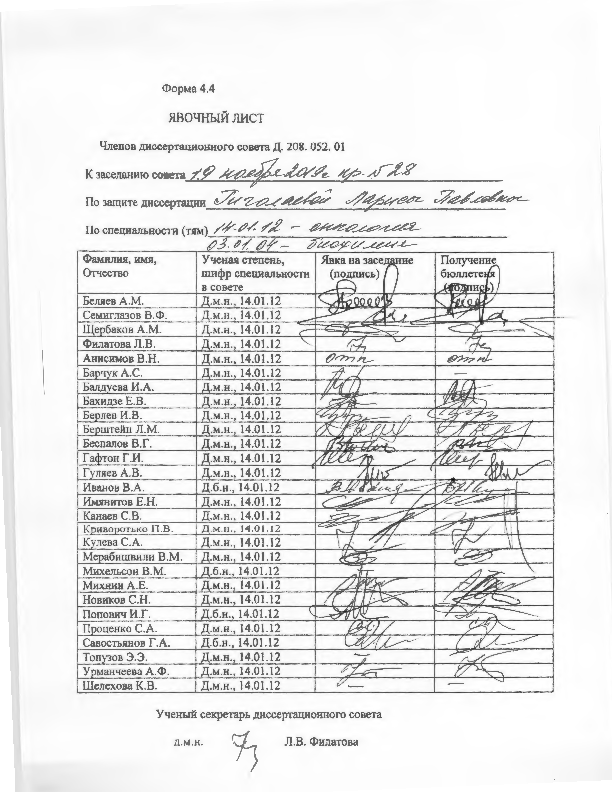 Форма 4.4
ЯВОЧНЫЙ ЛИСТ
Членов диссертационного совета Д. 208. 052. 01
К заседанию совета 19 ноября 2019г пр. № 28
По защите диссертации Гиголаевой Ларисе Павловне
По специальности (тям) 14.01.12 – онкология
03.01.04 – биохимия
Фамилия, имя, Отчество Ученая степень, шифр специальности в совете Явка на заседание (подпись) Получение бюллетеня (подпись)
Беляев А.М. Д.м.н., 14.01.12
Семиглазов В.Ф. Д.м.н., 14.01.12
Щербаков А.М. Д.м.н., 14.01.12
Филатова Л.В. Д.м.н., 14.01.12
Анисимов В.Н. Д.м.н., 14.01.12 отп отп
Барчук А.С. Д.м.н., 14.01.12 —
Балдуева И.А. Д.м.н., 14.01.12
Бахидзе Е.В. Д.м.н., 14.01.12
Берлев И.В. Д.м.н., 14.01.12
Берштейн Л.М. Д.м.н., 14.01.12
Беспалов В.Г. Д.м.н., 14.01.12
Гафтон Г.И. Д.м.н., 14.01.12
Гуляев А.В. Д.м.н., 14.01.12
Иванов В.А. Д.б.н., 14.01.12
Имянитов Е.Н. Д.м.н., 14.01.12
Канаев С.В. Д.м.н., 14.01.12
Криворотько П.В. Д.м.н., 14.01.12
Кулева С.А. Д.м.н., 14.01.12
Мерабишвили В.М. Д.м.н., 14.01.12
Михельсон В.М. Д.б.н., 14.01.12
Михнин А.Е. Д.м.н., 14.01.12
Новиков С.Н. Д.м.н., 14.01.12
Попович И.Г. Д.б.н., 14.01.12
Проценко С.А. Д.м.н., 14.01.12
Савостьянов Г.А. Д.б.н., 14.01.12
Топузов Э.Э. Д.м.н., 14.01.12
Урманчеева А.Ф. Д.м.н., 14.01.12
Шелехова К.В. Д.м.н., 14.01.12 — —
Ученый секретарь диссертационного совета
д.м.н. Л.В. Филатова